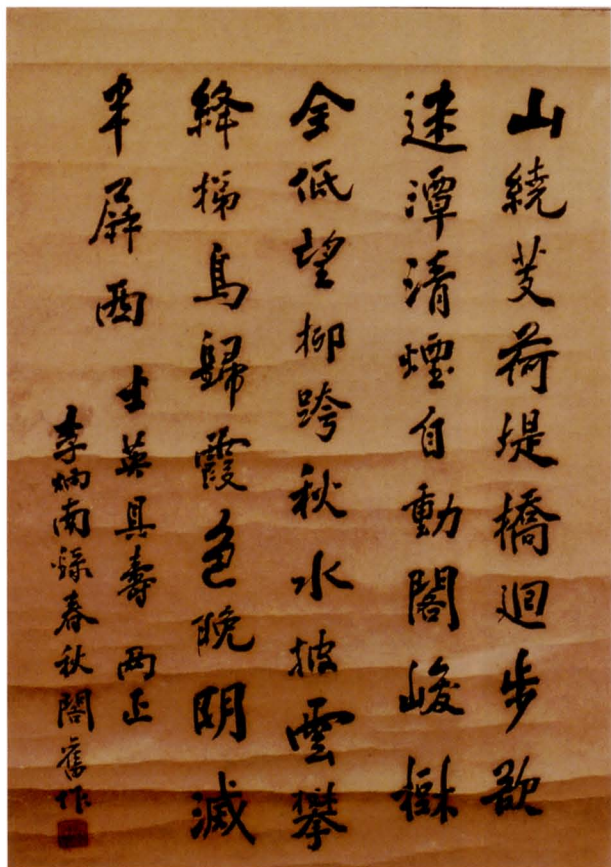 山繞芰荷堤橋迴步欲
迷潭清煙自動閣峻樹
全低望柳跨秋水披雲攀
絳梯鳥歸霞色晚明滅
半屏西 士英具壽 兩正
李炳南錄春秋閣舊作